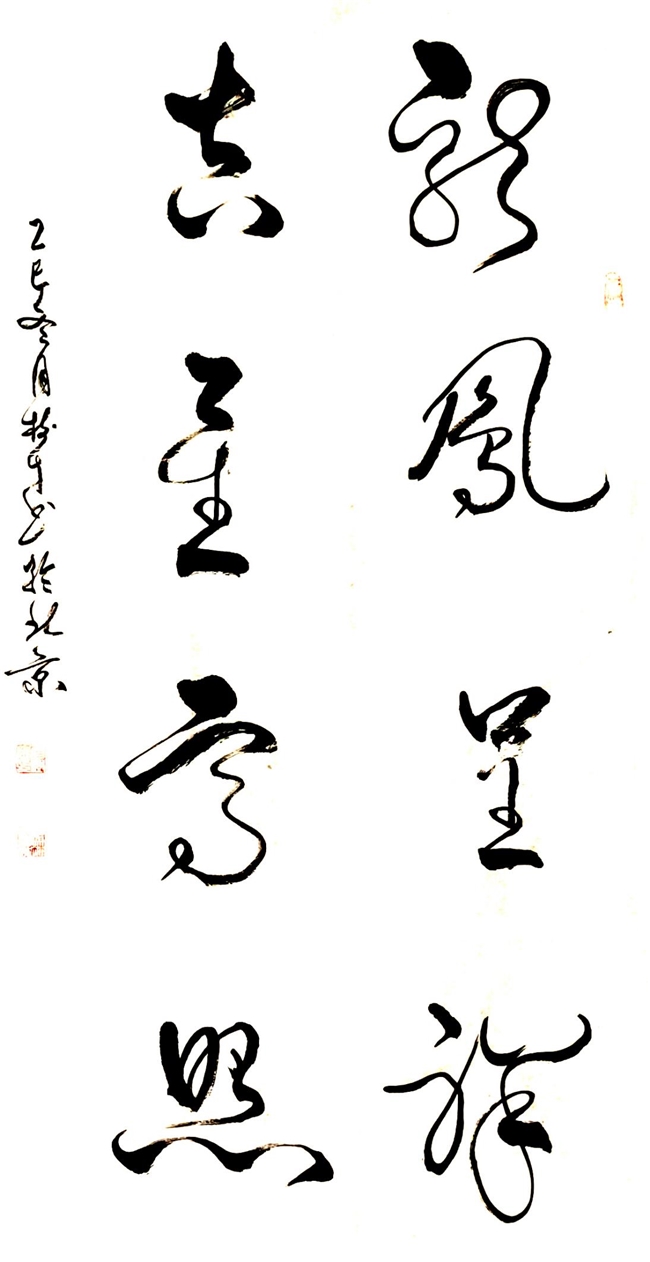 龍鳳呈祥
吉星高照
乙巳冬月树才书於北京